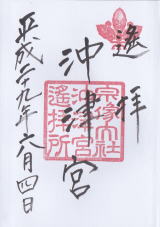 遙拝
沖津宮
宗像大社
沖津宮
遙拝所
平成二十九年六月四日